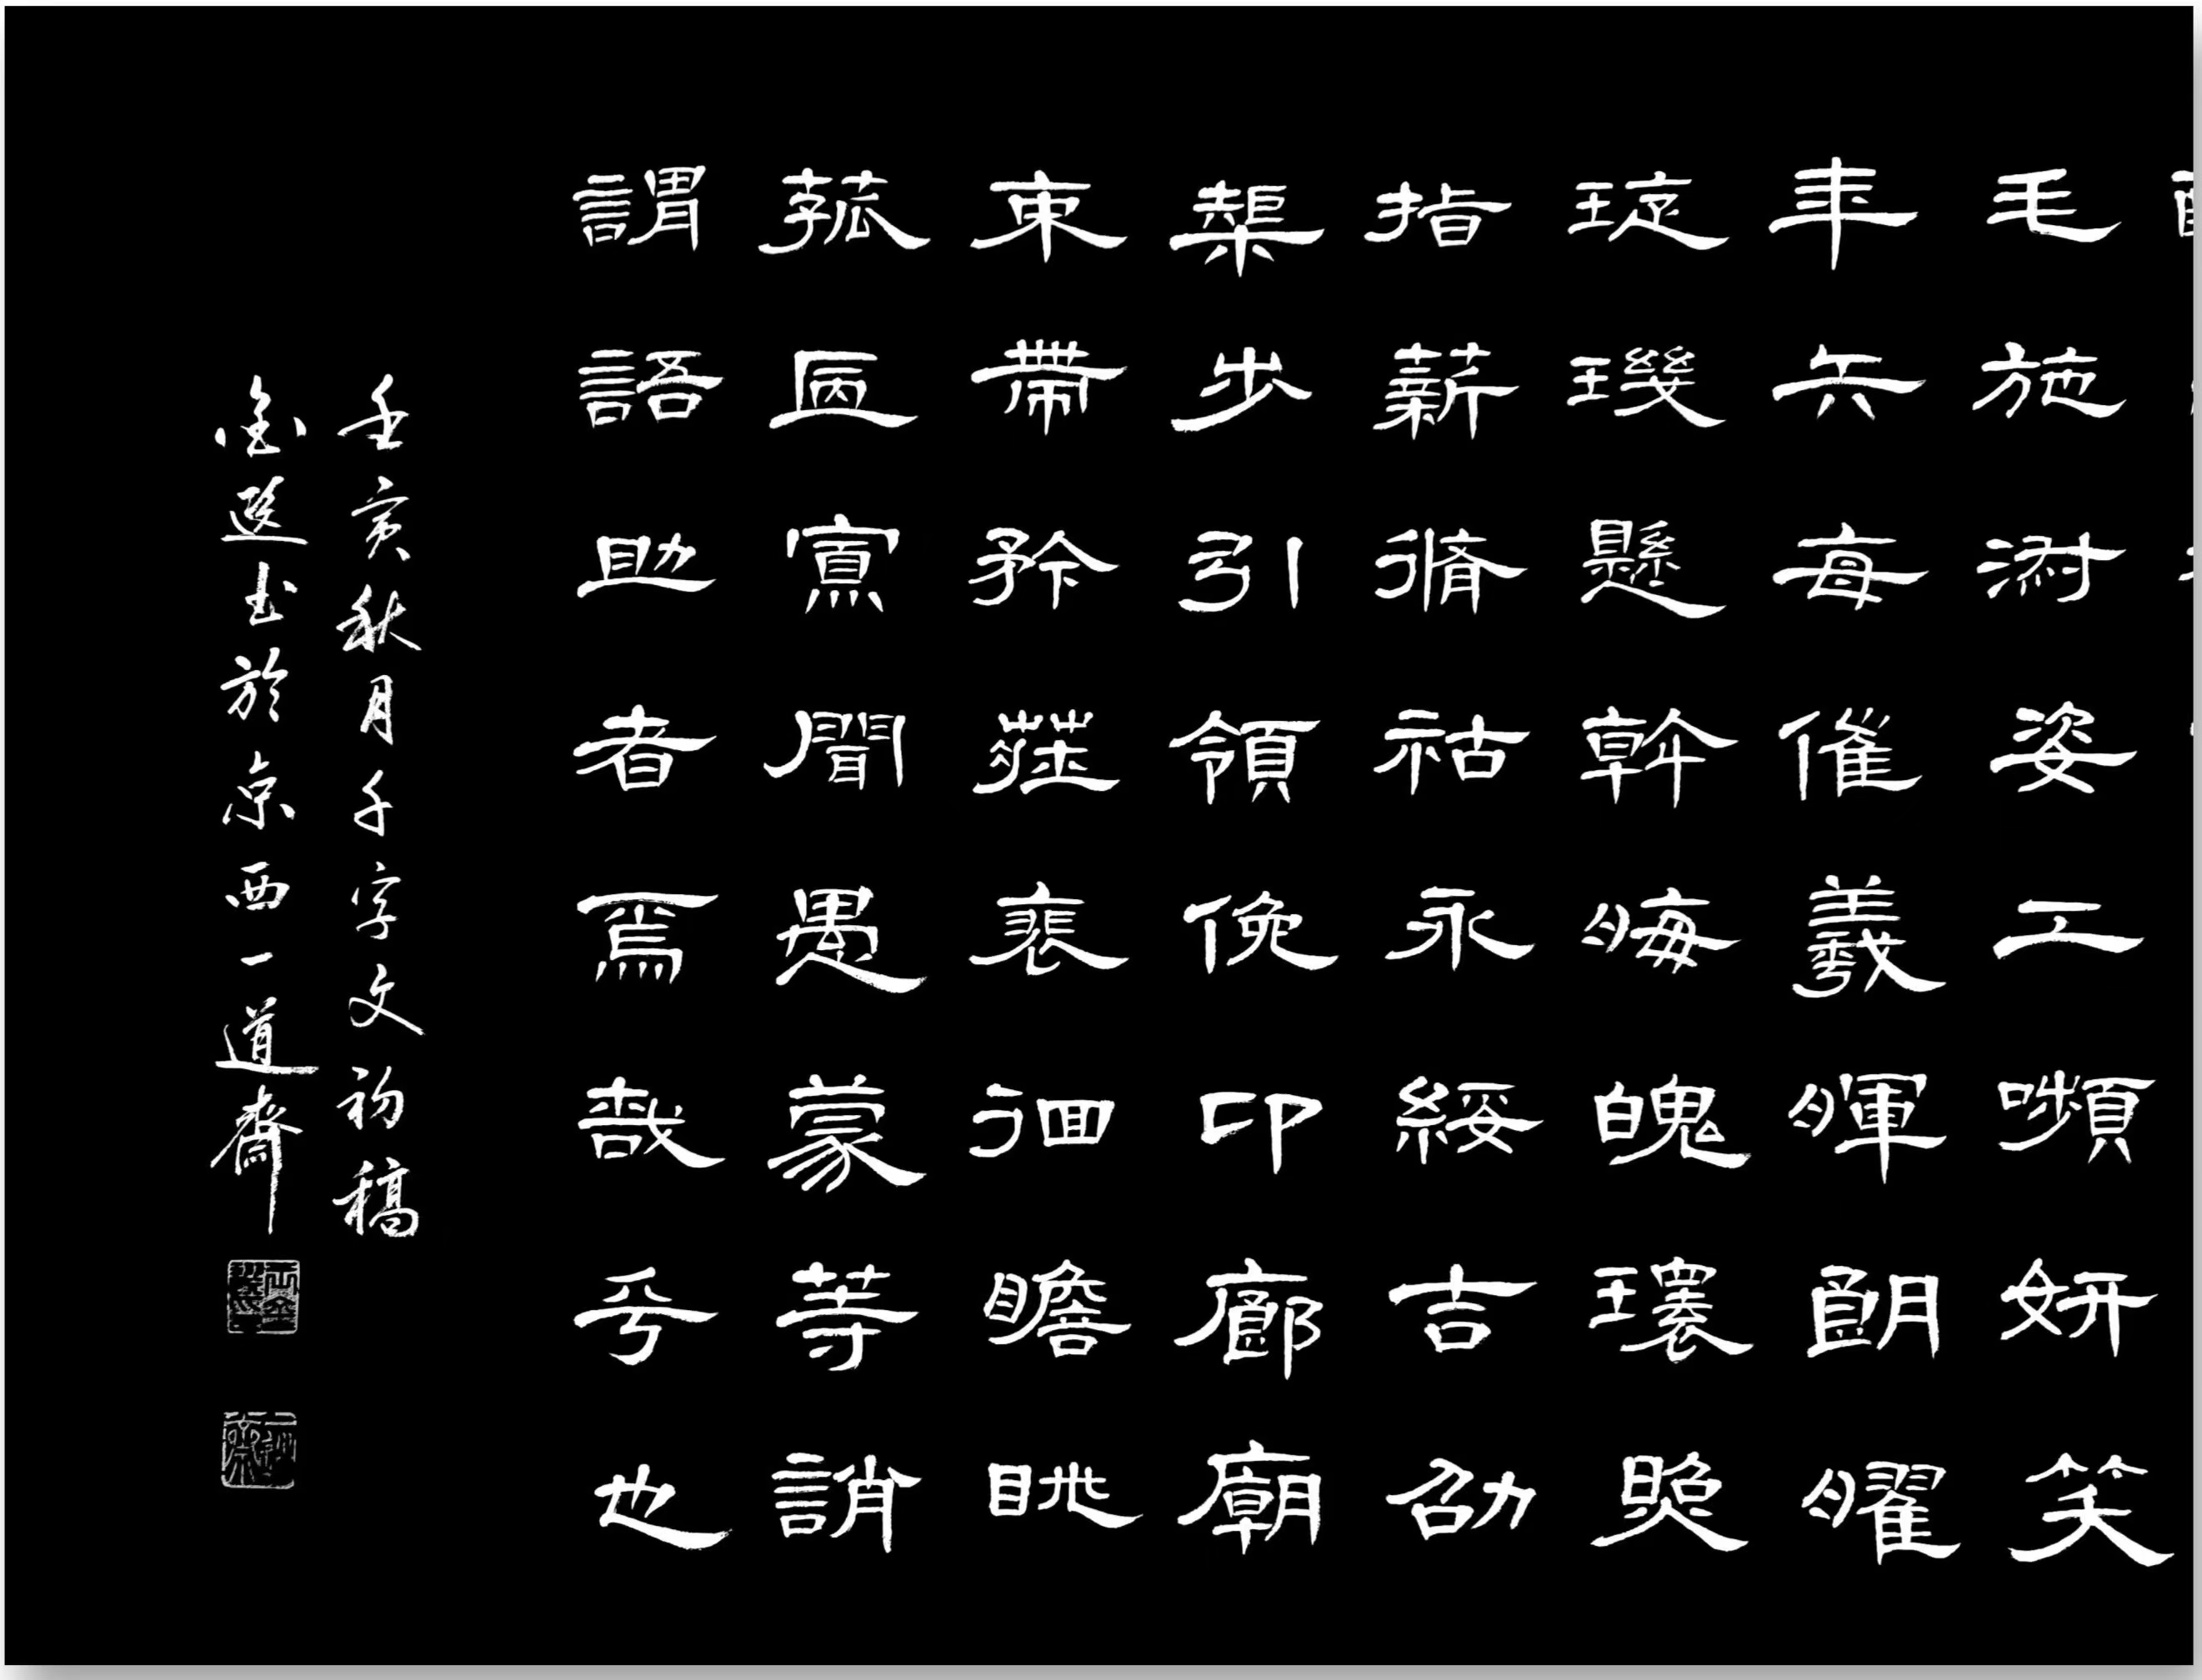 毛施淑姿工嚬妍笑
年矢每催羲暉朗曜
琁璣懸斡晦魄環照
指薪脩祜永綏吉劭
榘步引領俛卬廊廟
束帶矜莊裵徊瞻眺
菰㔷寡聞愚蒙等誚
謂語助者焉哉乎也
壬寅秋月千字文初稿
金书於京西一道齋